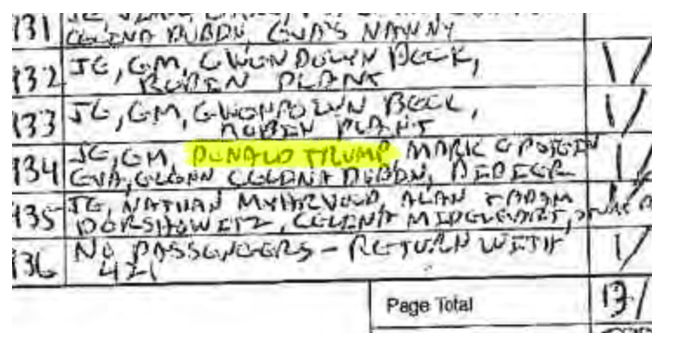 131
CELINA DUBIN, EVA'S NANNY
132 JE, GM, GWENDOLYN BECK, 1/
ROBEN PLANT
133 JE, GM, GWENDOLYN BECK, 1/
ROBEN PLANT
134 JE, GM, DONALD TRUMP MARK EPSTEIN 1/
EVA, GLENN CELINA DUBIN, DIDIER
135 JE, NATHAN MYHRVOLD, ALAN
DERSHOWITZ, CELINA
136 NO PASSENGERS - RETURN WITH 1/
421
Page Total 13/